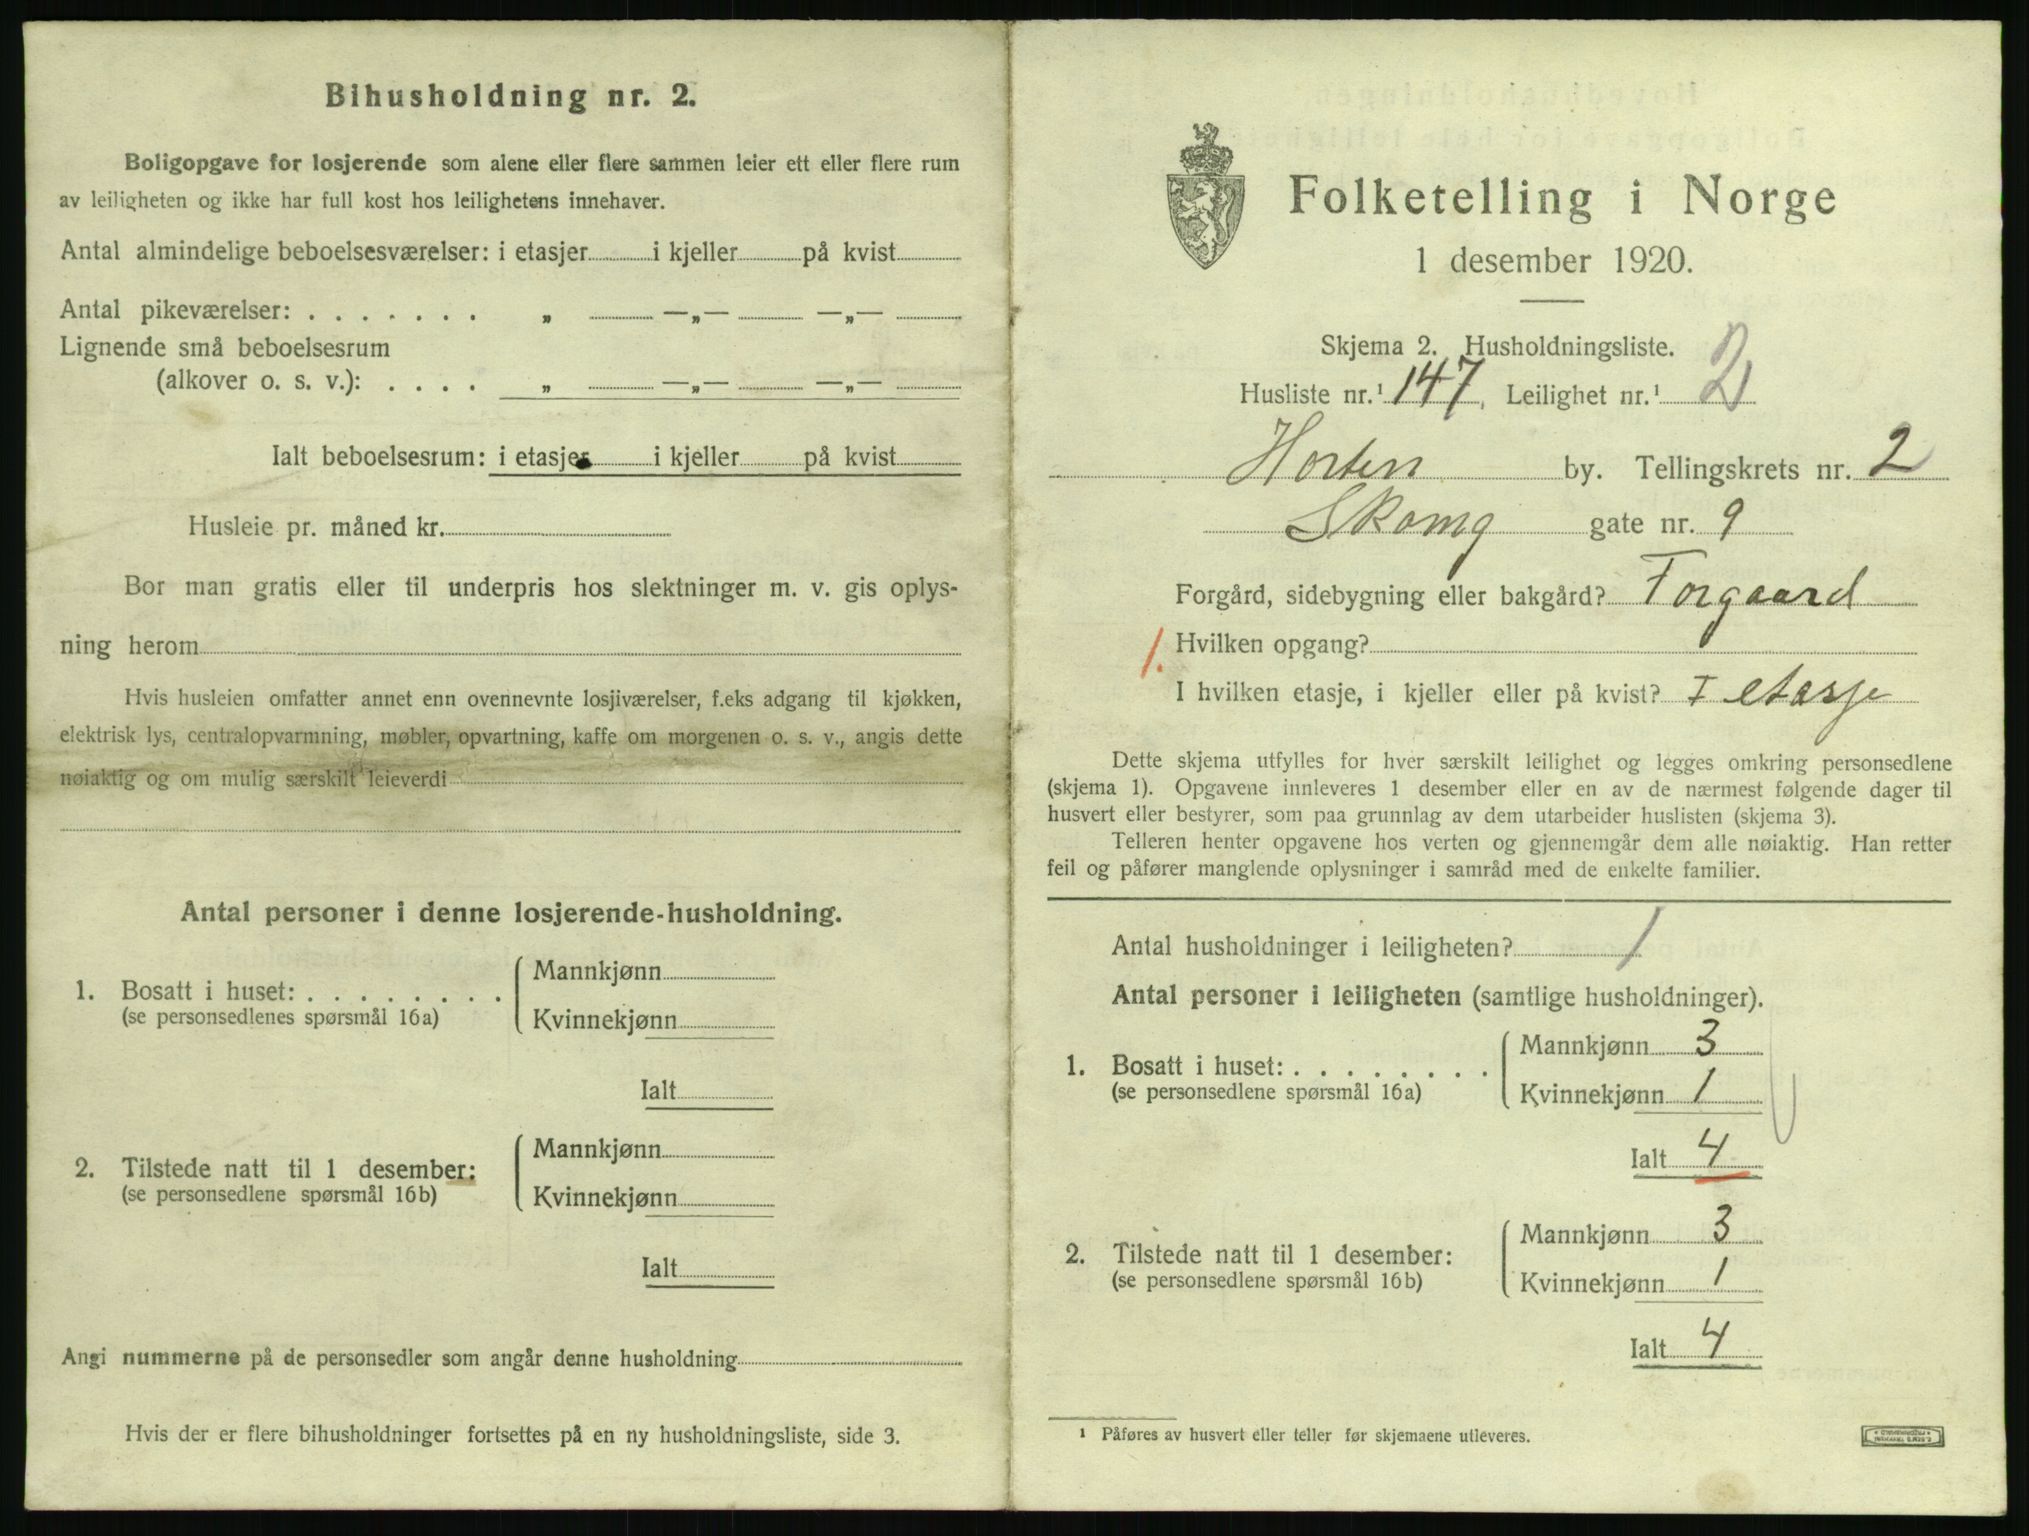 Bihusholdning nr. 2.
Boligopgave for losjerende som alene eller flere sammen leier ett eller flere rum
av leiligheten og ikke har full kost hos leilighetens innehaver.
Antal almindelige beboelsesværelser: i etasjer i kjeller på kvist
Antal pikeværelser: . . . . . . . „ —„— —„—
Lignende små beboelsesrum
(alkover o. s. v.): . . . . „ —„— —„—
Ialt beboelsesrum: i etasjer i kjeller på kvist
Husleie pr. måned kr.
Bor man gratis eller til underpris hos slektninger m. v. gis oplys-
ning herom
Hvis husleien omfatter annet enn ovennevnte losjiværelser, f.eks adgang til kjøkken,
elektrisk lys, centralopvarmning, møbler, opvartning, kaffe om morgenen o. s. v., angis dette
nøiaktig og om mulig særskilt leieverdi
Antal personer i denne losjerende-husholdning.
1. Bosatt i huset: . . . . . . . . Mannkjønn
(se personsedlenes spørsmål 16a) Kvinnekjønn
Ialt
2. Tilstede natt til 1 desember: Mannkjønn
(se personsedlene spørsmål 16b) Kvinnekjønn
Ialt
Angi nummerne på de personsedler som angår denne husholdning
Hvis der er flere bihusholdninger fortsettes på en ny husholdningsliste, side 3.
Folketelling i Norge
1 desember 1920.
Skjema 2. Husholdningsliste.
Husliste nr.¹ 147, Leilighet nr.¹ 2
Horten by. Tellingskrets nr. 2
Skomg gate nr. 9
Forgård, sidebygning eller bakgård? Forgaard
1. Hvilken opgang?
I hvilken etasje, i kjeller eller på kvist? I etasje
Dette skjema utfylles for hver særskilt leilighet og legges omkring personsedlene
(skjema 1). Opgavene innleveres 1 desember eller en av de nærmest følgende dager til
husvert eller bestyrer, som paa grunnlag av dem utarbeider huslisten (skjema 3).
Telleren henter opgavene hos verten og gjennemgår dem alle nøiaktig. Han retter
feil og påfører manglende oplysninger i samråd med de enkelte familier.
Antal husholdninger i leiligheten? 1
Antal personer i leiligheten (samtlige husholdninger).
1. Bosatt i huset: . . . . . . . . Mannkjønn 3
(se personsedlene spørsmål 16a) Kvinnekjønn 1
Ialt 4
2. Tilstede natt til 1 desember: Mannkjønn 3
(se personsedlene spørsmål 16b) Kvinnekjønn 1
Ialt 4
¹ Påføres av husvert eller teller før skjemaene utleveres.